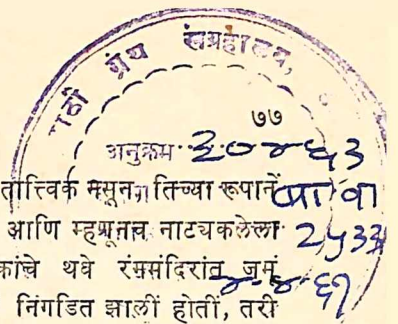 ठी ग्रंथ संग्रहालय,
७७
अनुक्रम ३०४६३
तात्त्विक नसून तिच्या रूपानें
आणि म्हणूनच नाट्यकलेला
कांचे थवे रंगमंदिरांत जमूं
निगडित झालीं होतीं, तरी